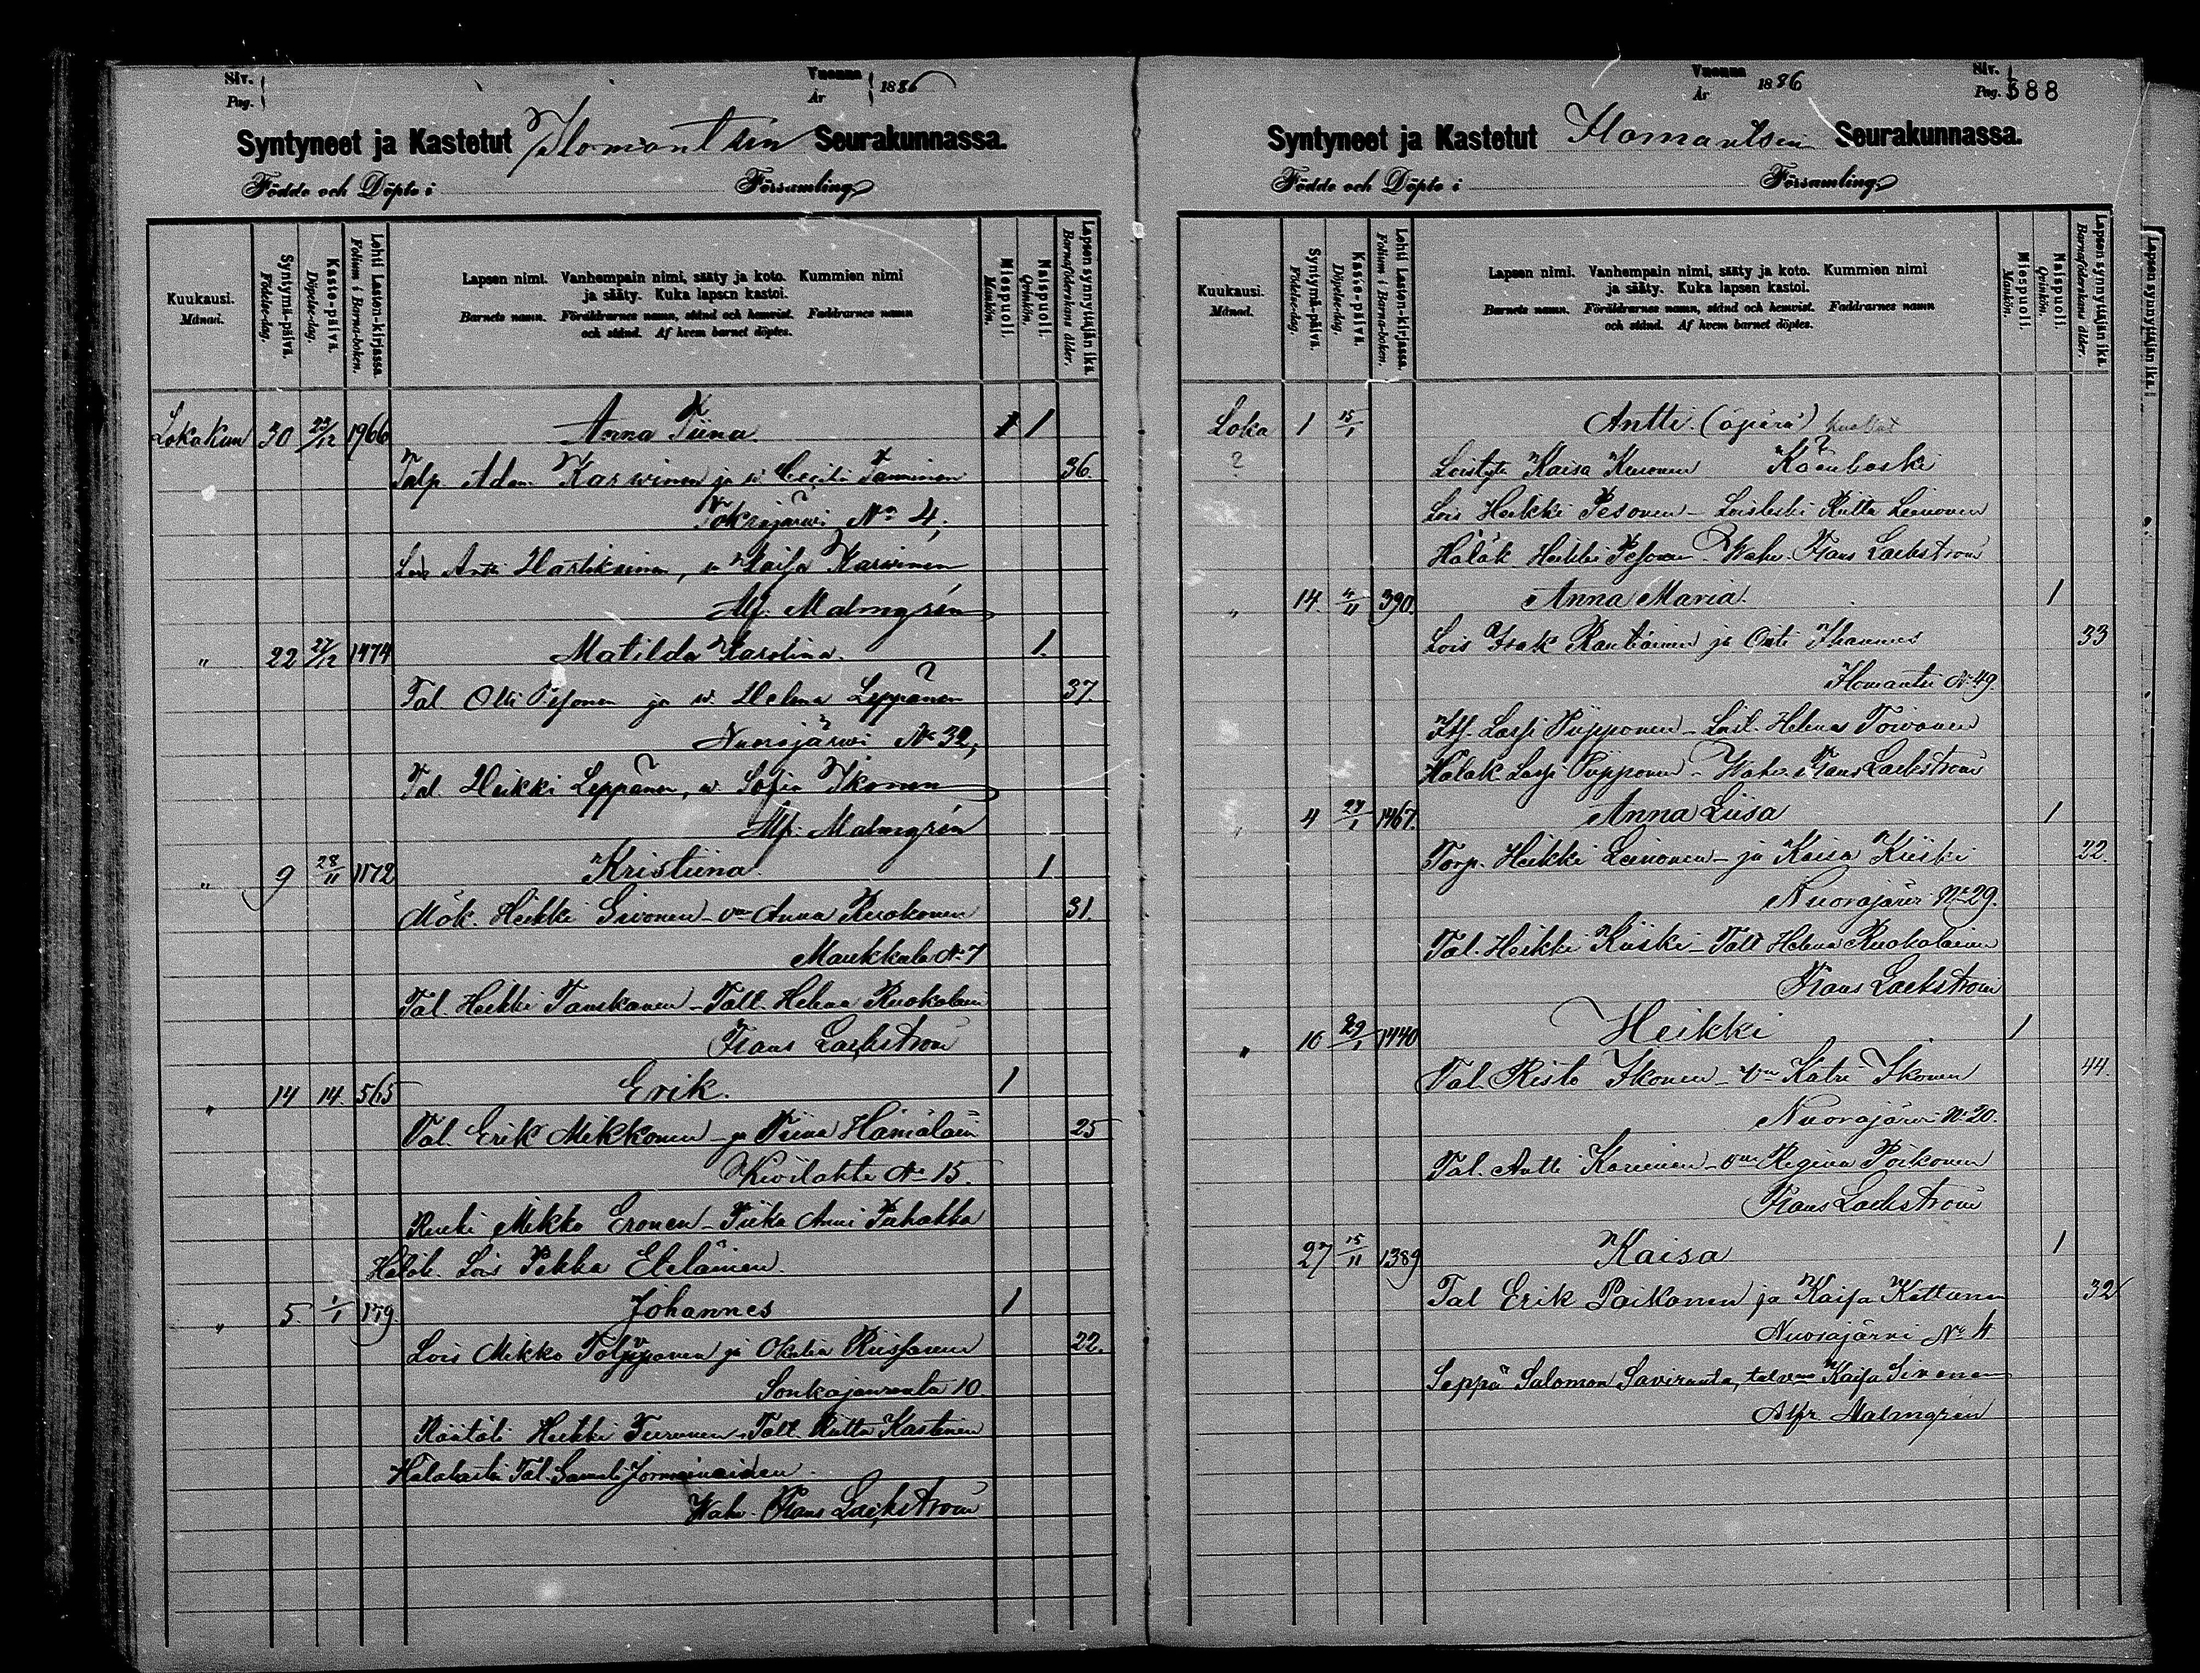 Siv.
Pag.
Vuonna
År
1886
Syntyneet ja Kastetut Ilomantsin Seurakunnassa.
Födde och Döpte i Församling
Kuukausi.
Månad.
Syntymä-päivä.
Födelse-dag.
Kaste-päivä.
Döpelse-dag.
Lehti Lasten-kirjassa.
Folium i Barna-boken.
Lapsen nimi. Vanhempain nimi, sääty ja koto. Kummien nimi
ja sääty. Kuka lapsen kastoi.
Barnets namn. Föräldrarnes namn, stånd och hemvist. Faddrarnes namn
och stånd. Af hvem barnet döptes.
Miespuoli.
Mankön.
Naispuoli.
Qvinkön.
Lapsen synnyttäjän ikä.
Barnaföderskans ålder.
Lokakuu 30 23/12 1966 Anna Tiina 1
Talp Adam Karvinen ja w. Cecilia Tanninen 36.
Koksajärwi No 4,
Lois Antti Hartikainen, w Kaisa Karvinen
Alf. Malmgrén
" 22 27/12 1474 Matilda Karolina. 1.
Tal Olli Pesonen ja w. Helena Leppänen 37.
Nuorajärwi No 32,
Tal Heikki Leppänen, w. Sofia Ikonen
Alf. Malmgrén
" 9 28/11 1172 Kristiina 1
Mök. Heikki Sivonen - vm Anna Ruokonen 31.
Maukkula No 7
Tal. Heikki Tanskanen - Talt. Helena Ruokolain
Frans Laekström
" 14 14. 565 Erik. 1
Tal. Erik Mikkonen ja Tiina Hämäläin 25
Kivilahti No 15.
Renki Mikko Eronen - Piika Anni Puhakka
Hätäk. Lois Pekka Eteläinen.
" 5. 1/1 179. Johannes 1
Lois Mikko Tolvanen ja Okalia Riissanen 22.
Sonkajanranta 10.
Räätäli Heikki Turunen - Talt. Riitta Kastinen
Hätäkasti Tal. Samuli Jormainainen
Wahv. Frans Laekström
Vuonna
År
1886
Siv.
Pag. 588
Syntyneet ja Kastetut Ilomantsin Seurakunnassa.
Födde och Döpte i Församling
Kuukausi.
Månad.
Syntymä-päivä.
Födelse-dag.
Kaste-päivä.
Döpelse-dag.
Lehti Lasten-kirjassa.
Folium i Barna-boken.
Lapsen nimi. Vanhempain nimi, sääty ja koto. Kummien nimi
ja sääty. Kuka lapsen kastoi.
Barnets namn. Föräldrarnes namn, stånd och hemvist. Faddrarnes namn
och stånd. Af hvem barnet döptes.
Miespuoli.
Mankön.
Naispuoli.
Qvinkön.
Lapsen synnyttäjän ikä.
Barnaföderskans ålder.
Lapsen synnyttäjän ikä
Loka 1 15/1 Antti. (äpärä) kuollut
? Loistyt Kaisa Kuronen
Lois Heikki Pesonen - Loisleski Riitta Leinonen
Hätäk Heikki Pesonen - Wahv. Frans Laekström
" 14. 11/11 390. Anna Maria. 1
Lois Isak Rautiainen ja Outi Ihannus 33
Ilomantsi No 49.
Its. Lassi Piipponen - Loist. Helena Toivonen
Hätäk Lassi Piipponen - Wahv. Frans Laekström
" 4 27/1 1467. Anna Liisa 1
Torp. Heikki Leinonen - ja Kaisa Kiiski 22.
Nuorajärvi No 29.
Tal. Heikki Kiiski - Talt Helena Ruokolainen
Frans Laekström
" 10 29/1 1440 Heikki 1
Tal. Risto Ikonen - vm Katri Ikonen 44.
Nuorajärvi No 20.
Tal. Antti Karvinen - vm Regina Poikonen
Frans Laekström
27 15/11 1389 Kaisa 1
Tal Erik Poikonen ja Kaisa Kettunen 32
Nuorajärvi No 4
Seppä Salomon Saviranta, tal vmo Kaisa Sivonen
Alfr Malmgrén